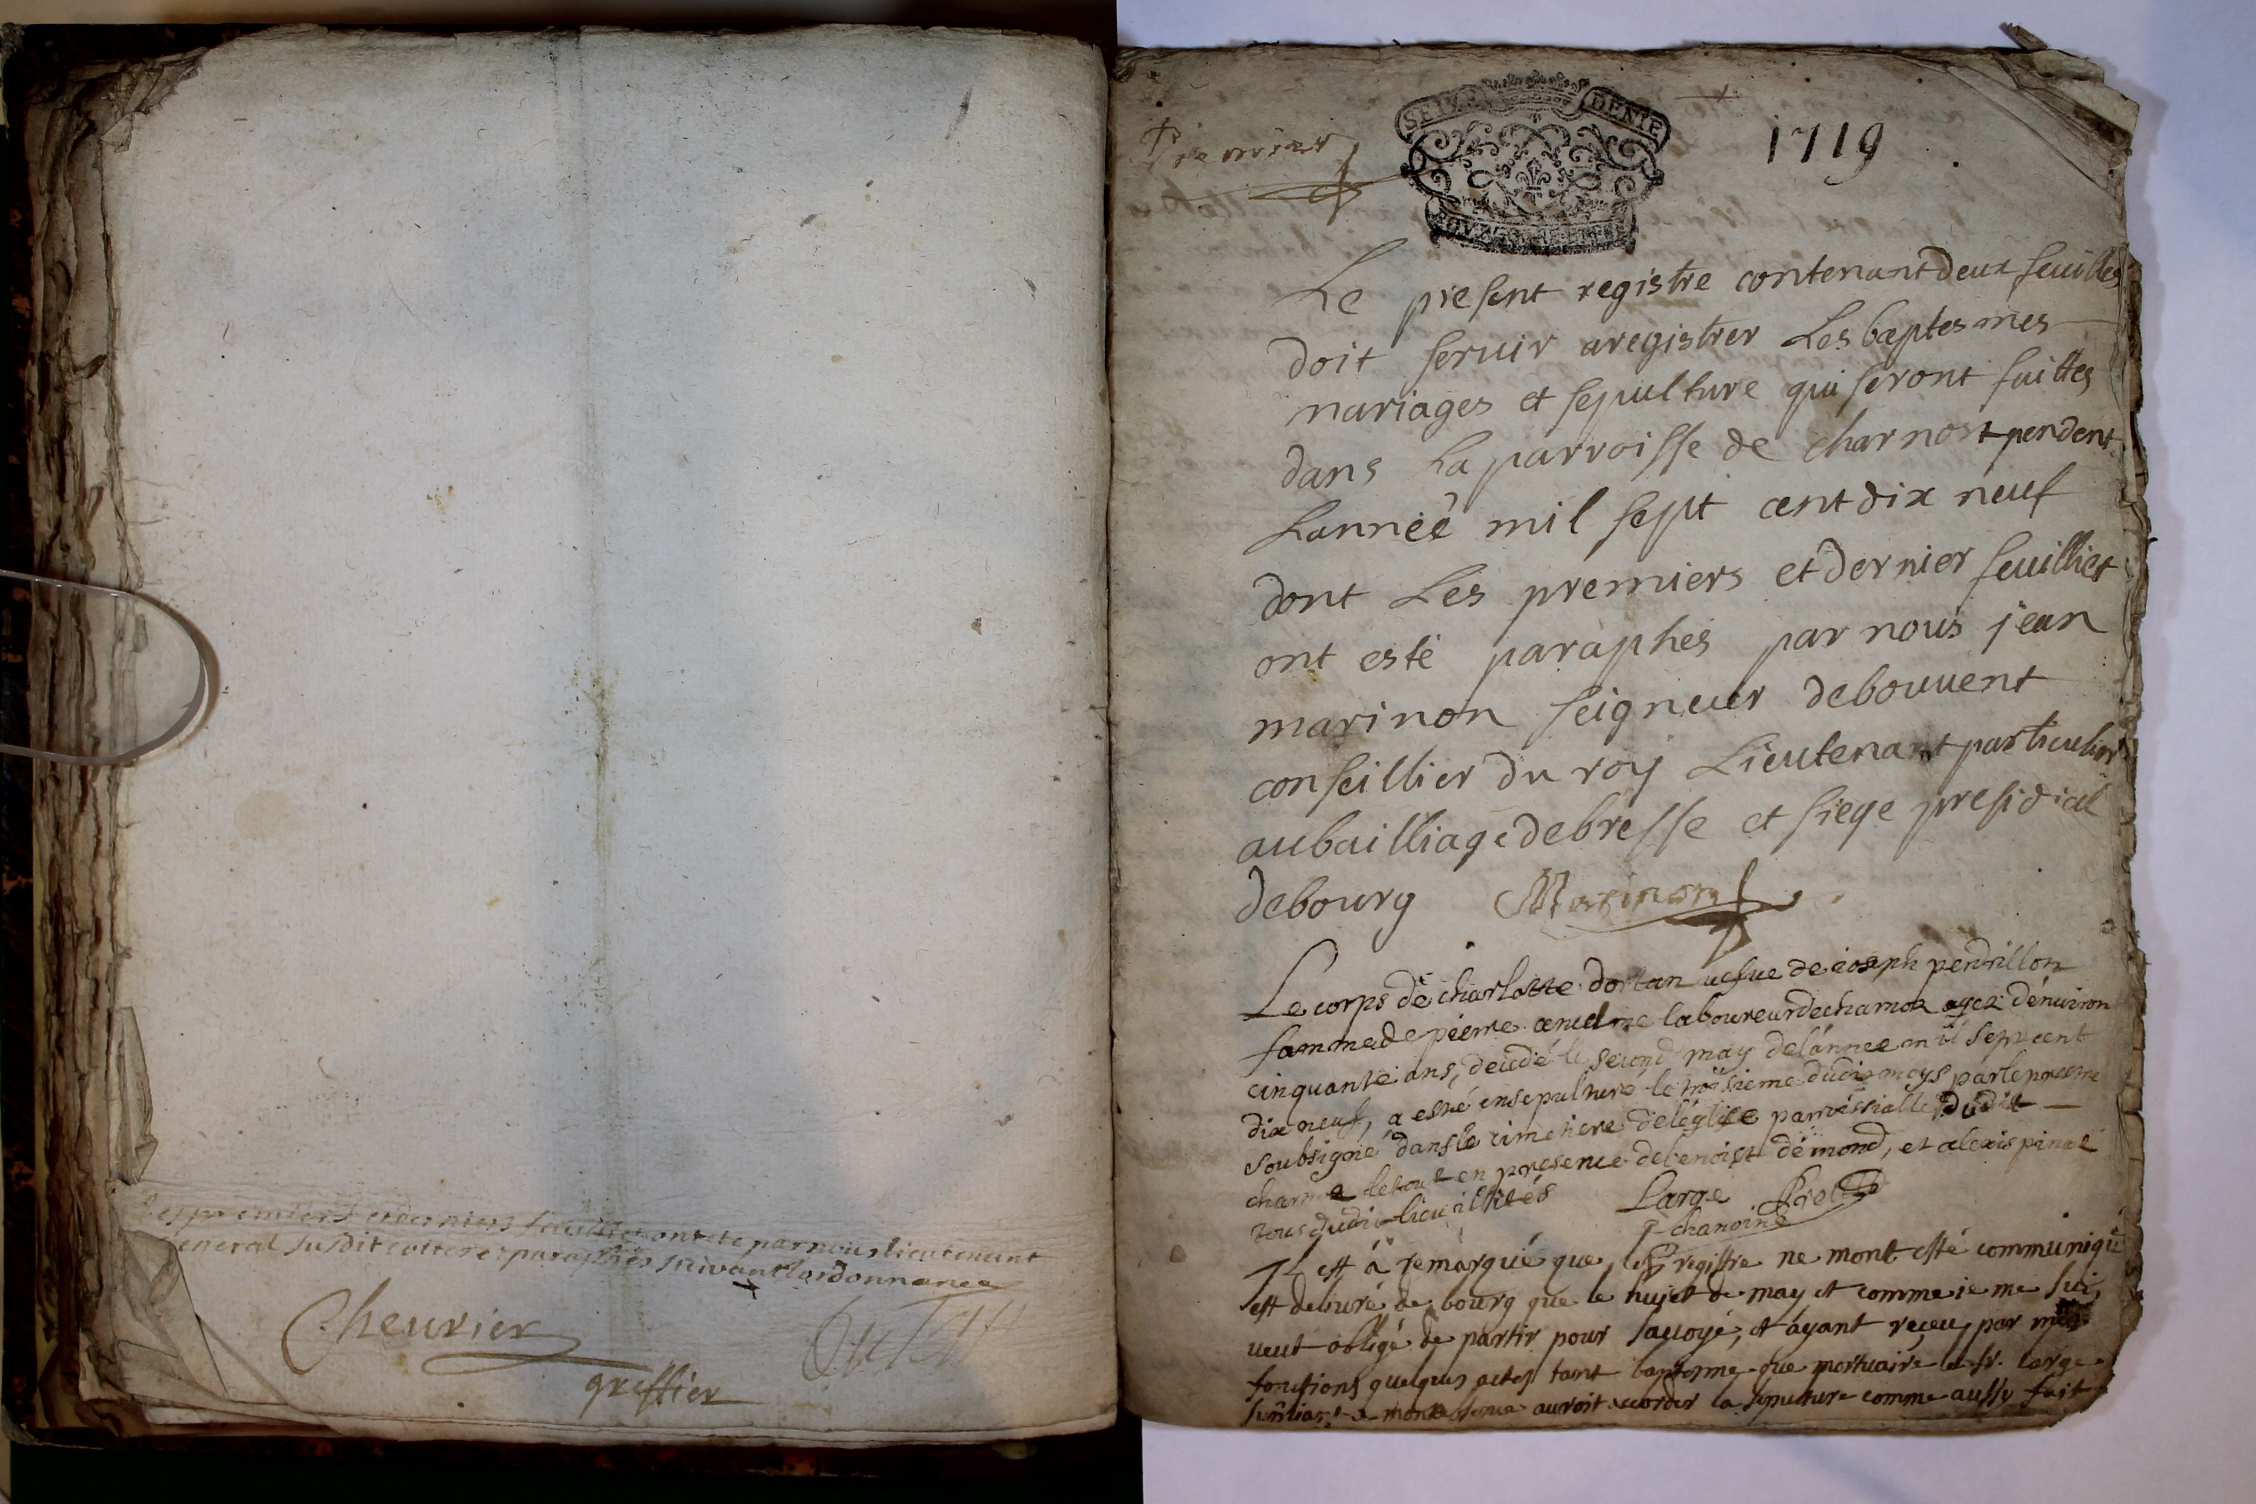 Les premiers et derniers feuillet ont ete par nous lieutenant
General susdit cottes et paraphes suivant lordonnance
Cheurier
greffier
Premier
SEIZE DENIE
1719
Le present registre contenant deux feuilles
doit servir aregistrer Les baptesmes
mariages et sepulture qui seront faittes
dans La parroisse de charnost pendent
Lannéé mil sept cent dix neuf
dont Les premiers et dernier feuilliet
ont esté paraphés par nous jean
marinon seigneur debouvent
conseillier du roy Lieutenant particulier
au bailliage debresse et siege presidial
debourg Marinon
Le corps de charlotte dortan vefue de ioseph perdrillon
famme de pierre laboureur de charnoz agez dénuiron
cinquante ans, decedé le second may delánnee mil sept cent
dix neuf, a esté ensepulturé le troisieme dudit moys par le prestre
soubsigné dans le cimetiere deléglise parroissialle dudit
charnoz le tout en presence de benoist démond, et alexis pinet
tous dudit lieu illitterés Large
chanoine
Il est á remarqué que registre ne mont esté communiqué
est deliuré de bourg que le huict de may et comme ie me suis
veut obligé de partir pour sauoye, et áyant réceu par mes
fonctions quelques actes tant baptesme que mortuaire large
auroit accorder la sepulture comme aussy fait